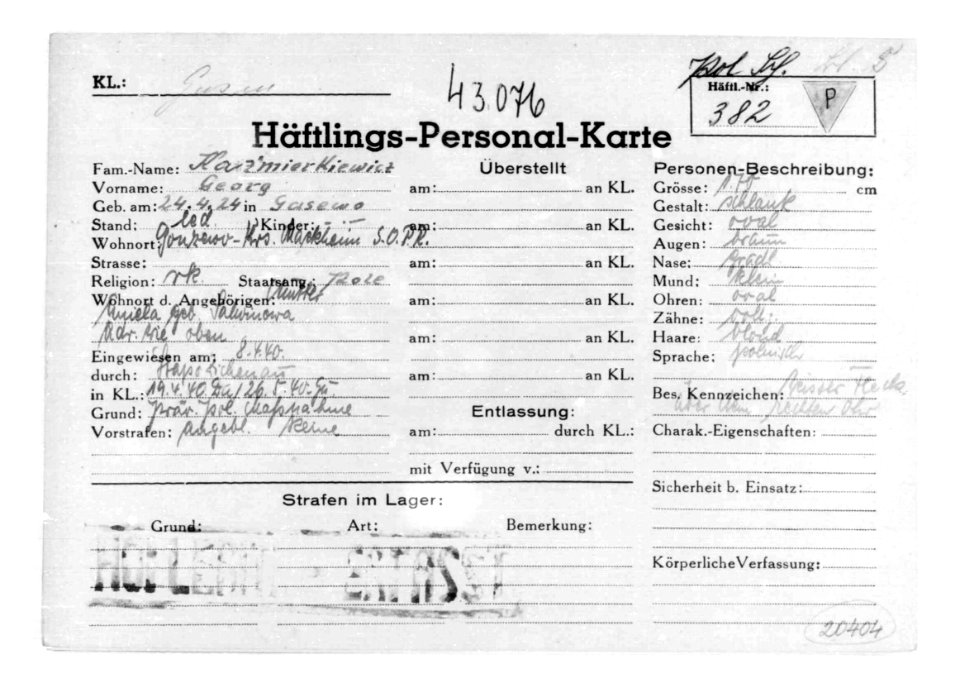 Pol Sch.
KL.: Gusen
43.076
Häftl.-Nr.:
382
P
Häftlings-Personal-Karte
Fam.-Name: Kazimierkiewicz
Vorname: Georg
Geb. am: 24.4.24 in Gasewo
Stand: led Kinder: —
Wohnort: Krs. Mackheim S.O.PR.
Strasse:
Religion: rk. Staatsang.: Pole
Wohnort d. Angehörigen: Mutter
Aniela geb.
Adr. wie oben
Eingewiesen am: 8.4.40.
durch: Stapo Zichenau
in KL.: 19.4.40 Da/26.5.40. Gu
Grund: pol. Maßnahme
Vorstrafen: angebl. keine
Überstellt
am: an KL.
am: an KL.
am: an KL.
am: an KL.
am: an KL.
am: an KL.
Entlassung:
am: durch KL.:
mit Verfügung v.:
Personen-Beschreibung:
Grösse: 170 cm
Gestalt: schlank
Gesicht: oval
Augen: braun
Nase: gradl
Mund: klein
Ohren: oval
Zähne: voll.
Haare: blond
Sprache: polnisch
Bes. Kennzeichen: weisser Fleck
über dem rechten Ohr
Charak.-Eigenschaften:
Sicherheit b. Einsatz:
Körperliche Verfassung:
Strafen im Lager:
Grund: Art: Bemerkung:
HOLLERITH ERFASST
20404